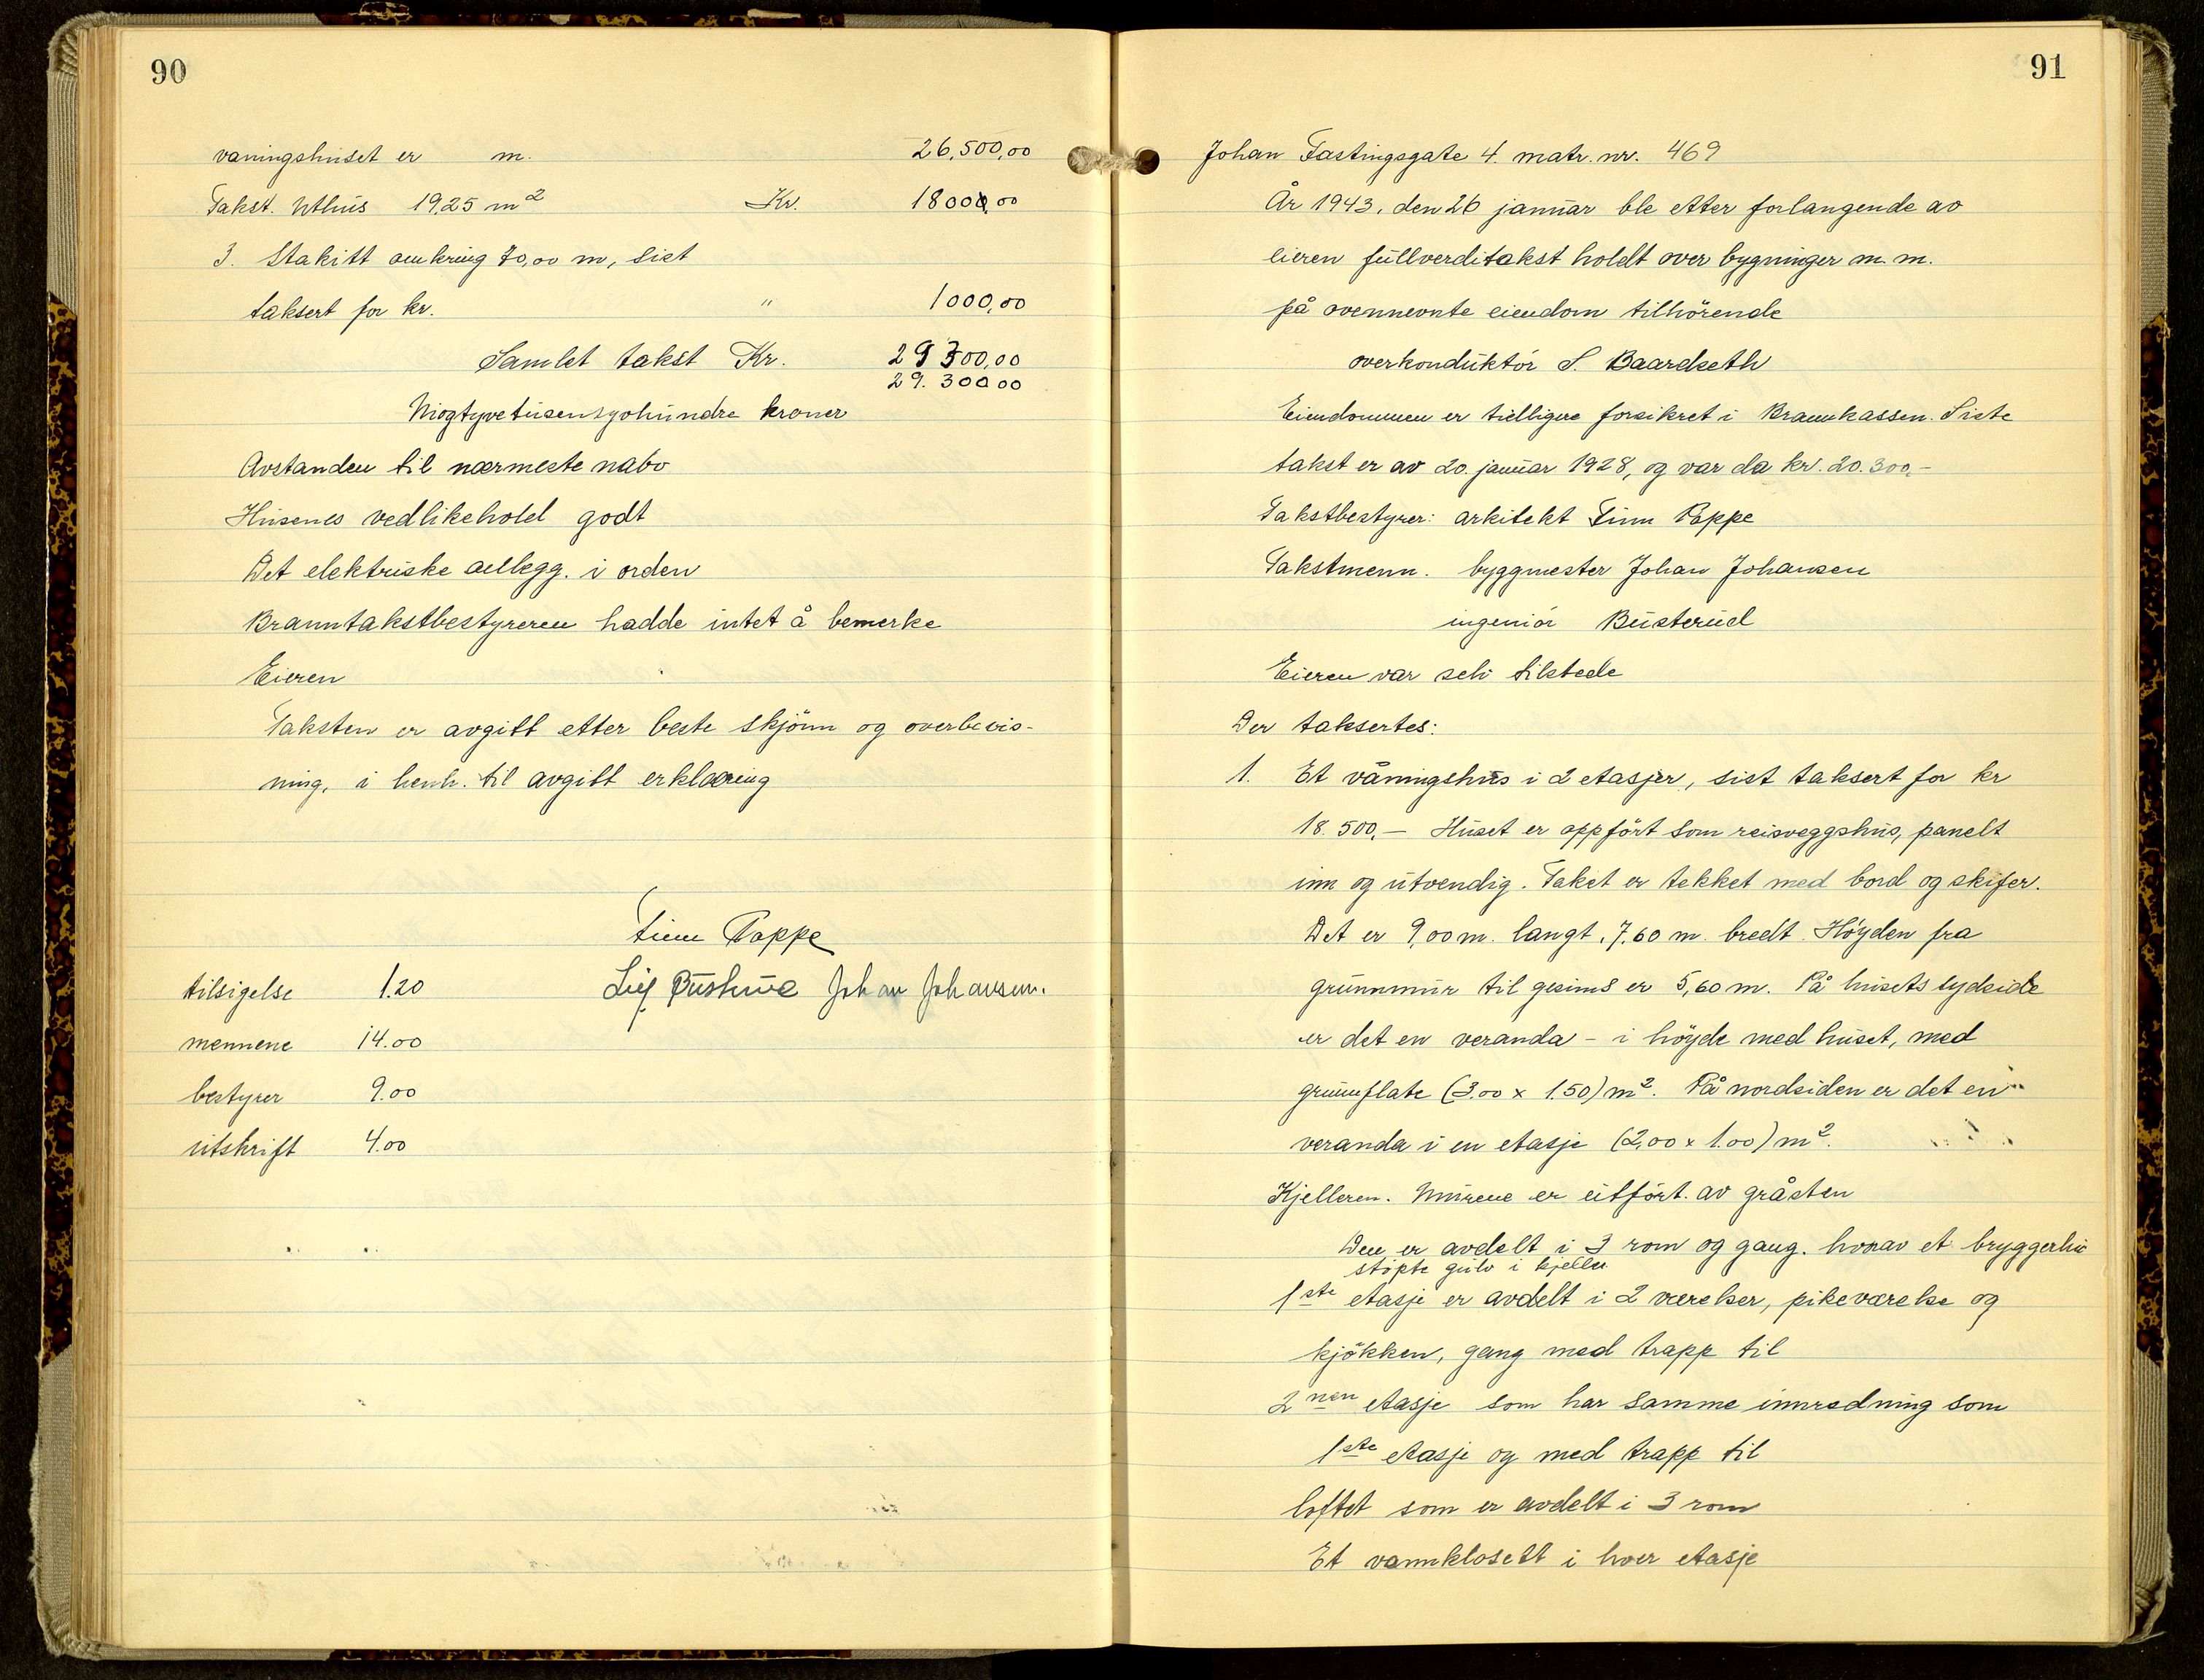 90
vaningshuset er m. 26,500,00
Takst. Uthus 19,25 m² Kr. 1800,00
3. Stakitt omkring 70,00 m, sist
taksert for kr. " 1000,00
Samlet takst Kr. 29300,00
29.300,00
Niogtyvetusen hundre kroner
Avstanden til nærmeste nabo
Husenes vedlikehold godt
Det elektriske anlegg. i orden
Branntakstbestyreren hadde intet å bemerke
Eieren
Taksten er avgitt etter beste skjönn og overbevis-
ning, i henh. til avgitt erklæring
Finn Poppe
Johan Johansen.
tilsigelse 1.20
mennene 14.00
bestyrer 9.00
utskrift 4.00
91
Johan Fastingsgate 4. matr. nr. 469
År 1943, den 26 januar ble etter forlangende av
eieren fullverditakst holdt over bygninger m.m.
på ovennevnte eiendom tilhörende
overkonduktör S. Baardseth
Eiendommen er tidligere forsikret i Brannkassen. Siste
takst er av 20. januar 1928, og var da kr. 20.300,-
Takstbestyrer: arkitekt Finn Poppe
Takstmenn. byggmester Johan Johansen
ingeniör Busterud
Eieren var selv tilstede
Der taksertes:
1. Et våningshus i 2 etasjer, sist taksert for kr
18.500,— Huset er oppfört som reisveggshus, panelt
inn og utvendig. Taket er tekket med bord og skifer.
Det er 9,00 m. langt, 7,60 m. bredt. Höyden fra
grunnmur til gesims er 5,60 m. På husets sydside
er det en veranda - i höyde med huset, med
grunnflate (3.00 x 1.50) m². På nordsiden er det en
veranda i en etasje (2,00 x 1.00) m².
Kjelleren. Murene er utfört. av gråsten
Den er avdelt i 3 rom og gang. hvorav et bryggerhus
stöpte gulv i kjeller
1ste etasje er avdelt i 2 værelser, pikeværelse og
kjökken, gang med trapp til
2nen etasje som har samme innredning som
1ste etasje og med trapp til
loftet som er avdelt i 3 rom
Et vannklosett i hver etasje